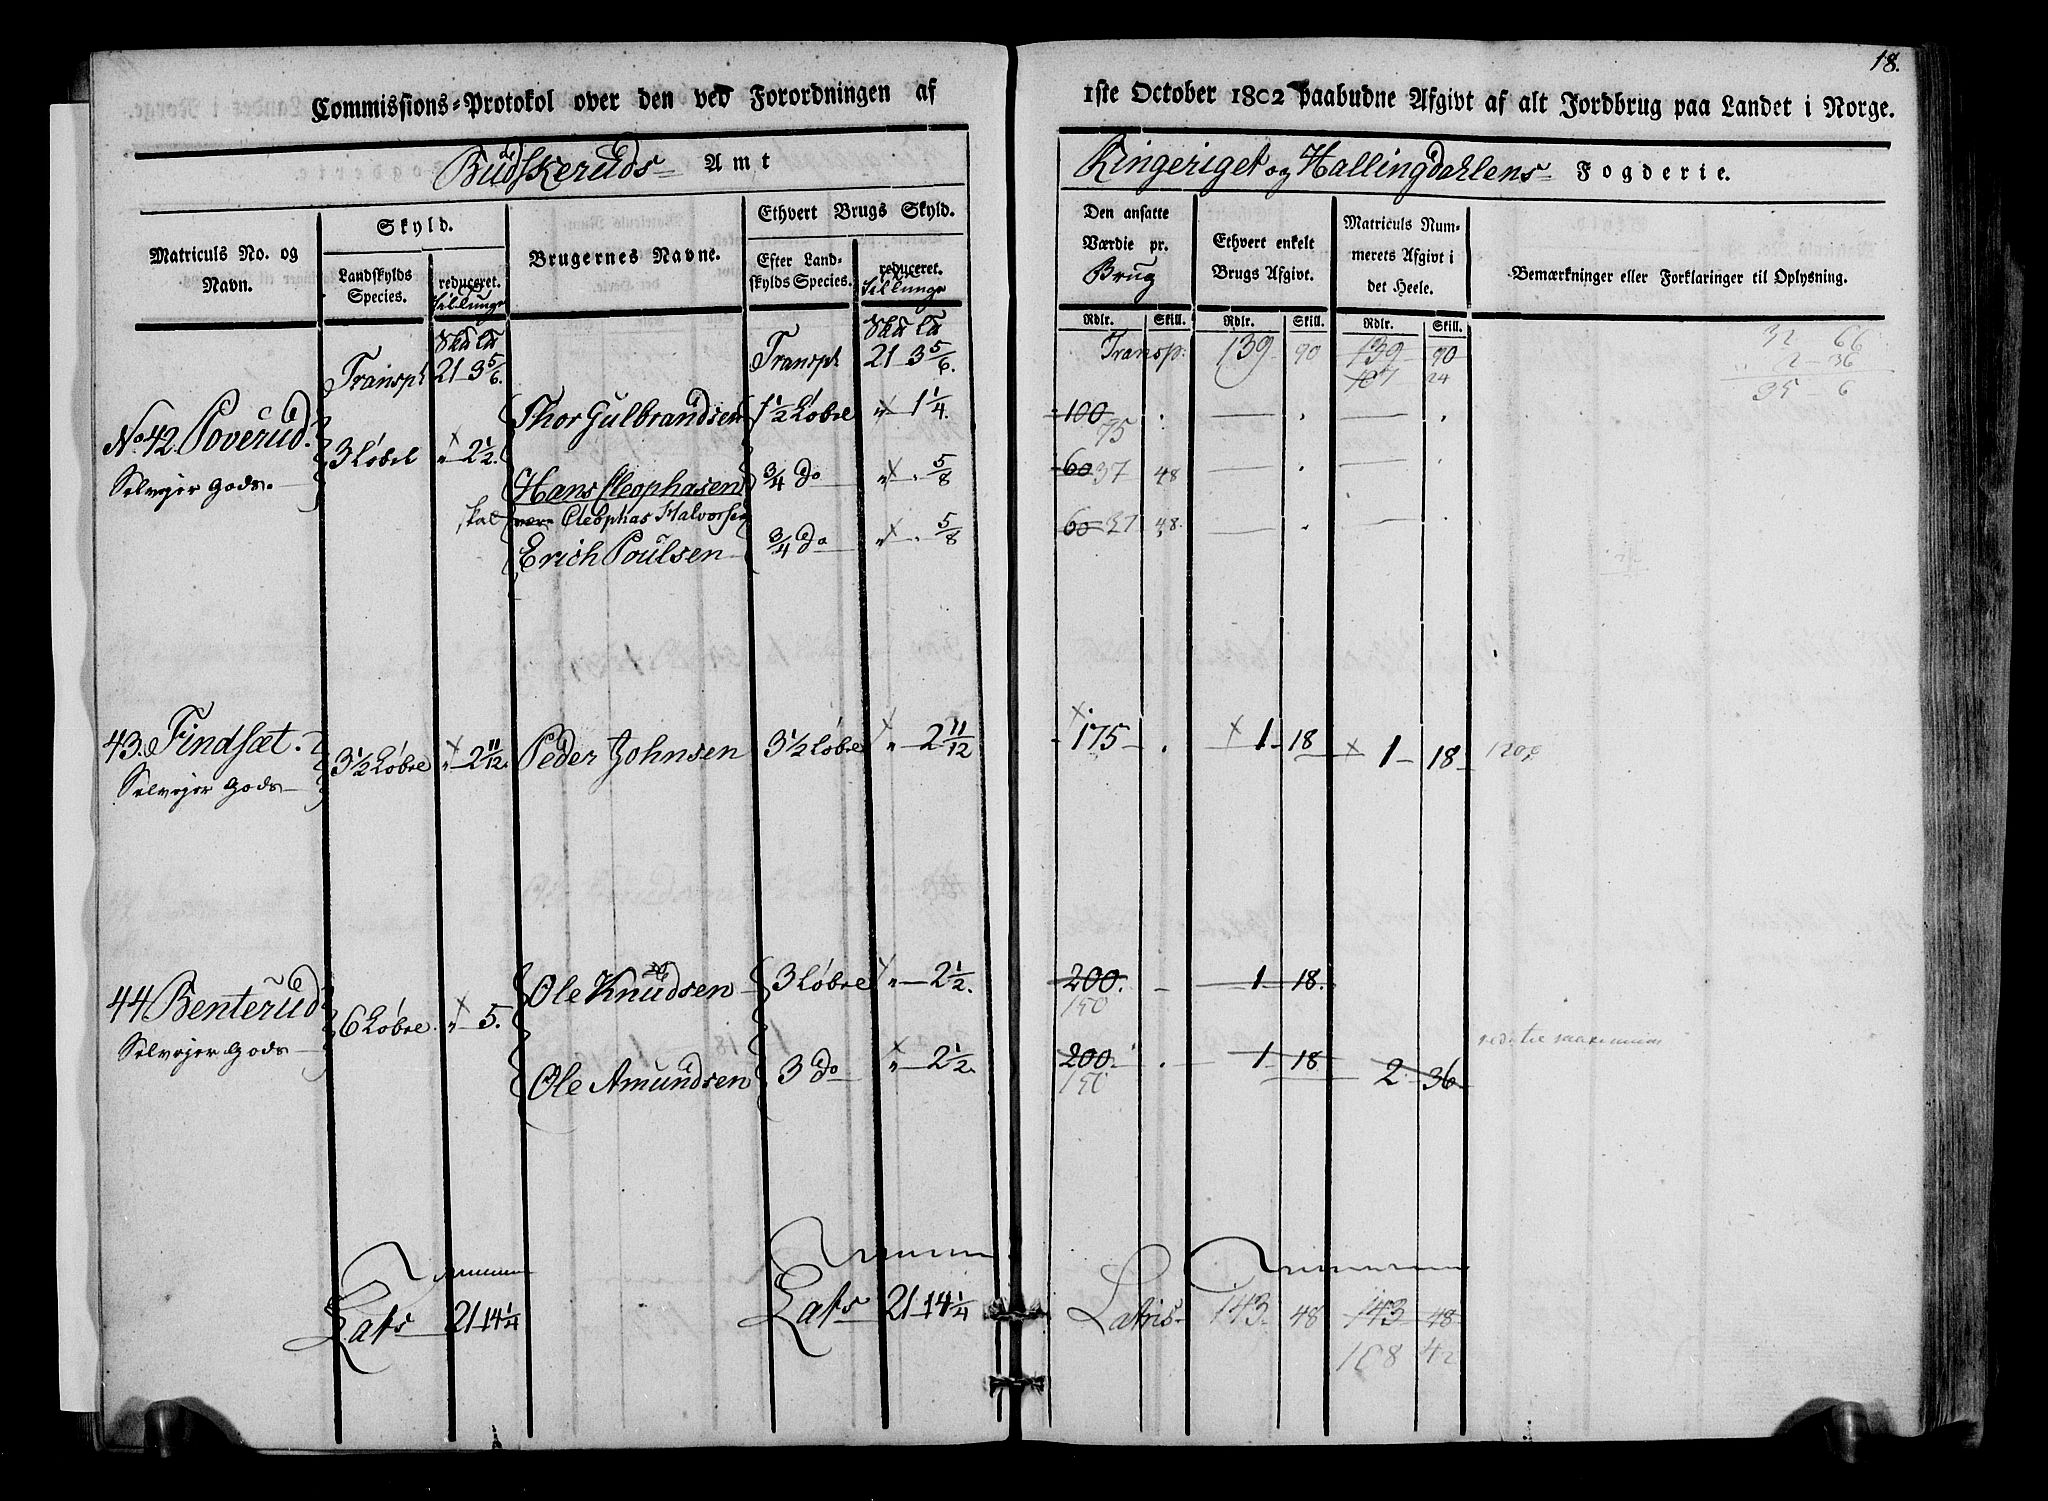 18.
Commissions=Protokol over den ved Forordningen af 1ste October 1802 paabudne Afgivt af alt Jordbrug paa Landet i Norge.
Büdskeruds= Amt
Ringeriget og Hallingdahlens= Fogderie.
Matriculs No. og Navn.
Skyld.
Landskylds Species.
reduceret.
Brugernes Navne.
Ethvert Brugs Skyld.
Efter Landskylds Species.
reduceret.
Den ansatte Værdie pr. Brug
Ethvert enkelt Brugs Afgivt.
Matriculs Nummerets Afgivt i det Heele.
Bemærkninger eller Forklaringer til Oplysning.
Rdlr. Skill. Rdlr. Skill. Rdlr. Skill.
Transpt 21 3 5/6. Transpt 21 3 5/6. Transp: 139 90 139 90
107 24
32 66
2 36
35 6
No 42 Poverud. 3 Løbel " 2 1/2.
Selvejer Gods.
Thor Gulbrandsen 1 1/2 Løbel " 1 1/4. 100 .
75
Hans Cleophasen 3/4 do " . 5/8 60 37 48
skal være Cleophas Halvorsen
Erich Poulsen 3/4 do " . 5/8 60 37 48.
43. Findsæt. 3 1/2 Løbel " 2 11/12. Peder Johnsen 3 1/2 Løbel " 2 11/12 175 . 1 18 1 18
Selvejer Gods
44 Benterud 6 Løbel. " 5.
Selvejer Gods
Ole Knudsen 3 Løbel " 2 1/2. 200. 1 18.
150
Ole Amundsen 3 do " 2 1/2. 200 . 1 18 2 36
150
Lats 21 14 1/4 Lats 21 14 1/4 Latris 143 48 143 48
108 42